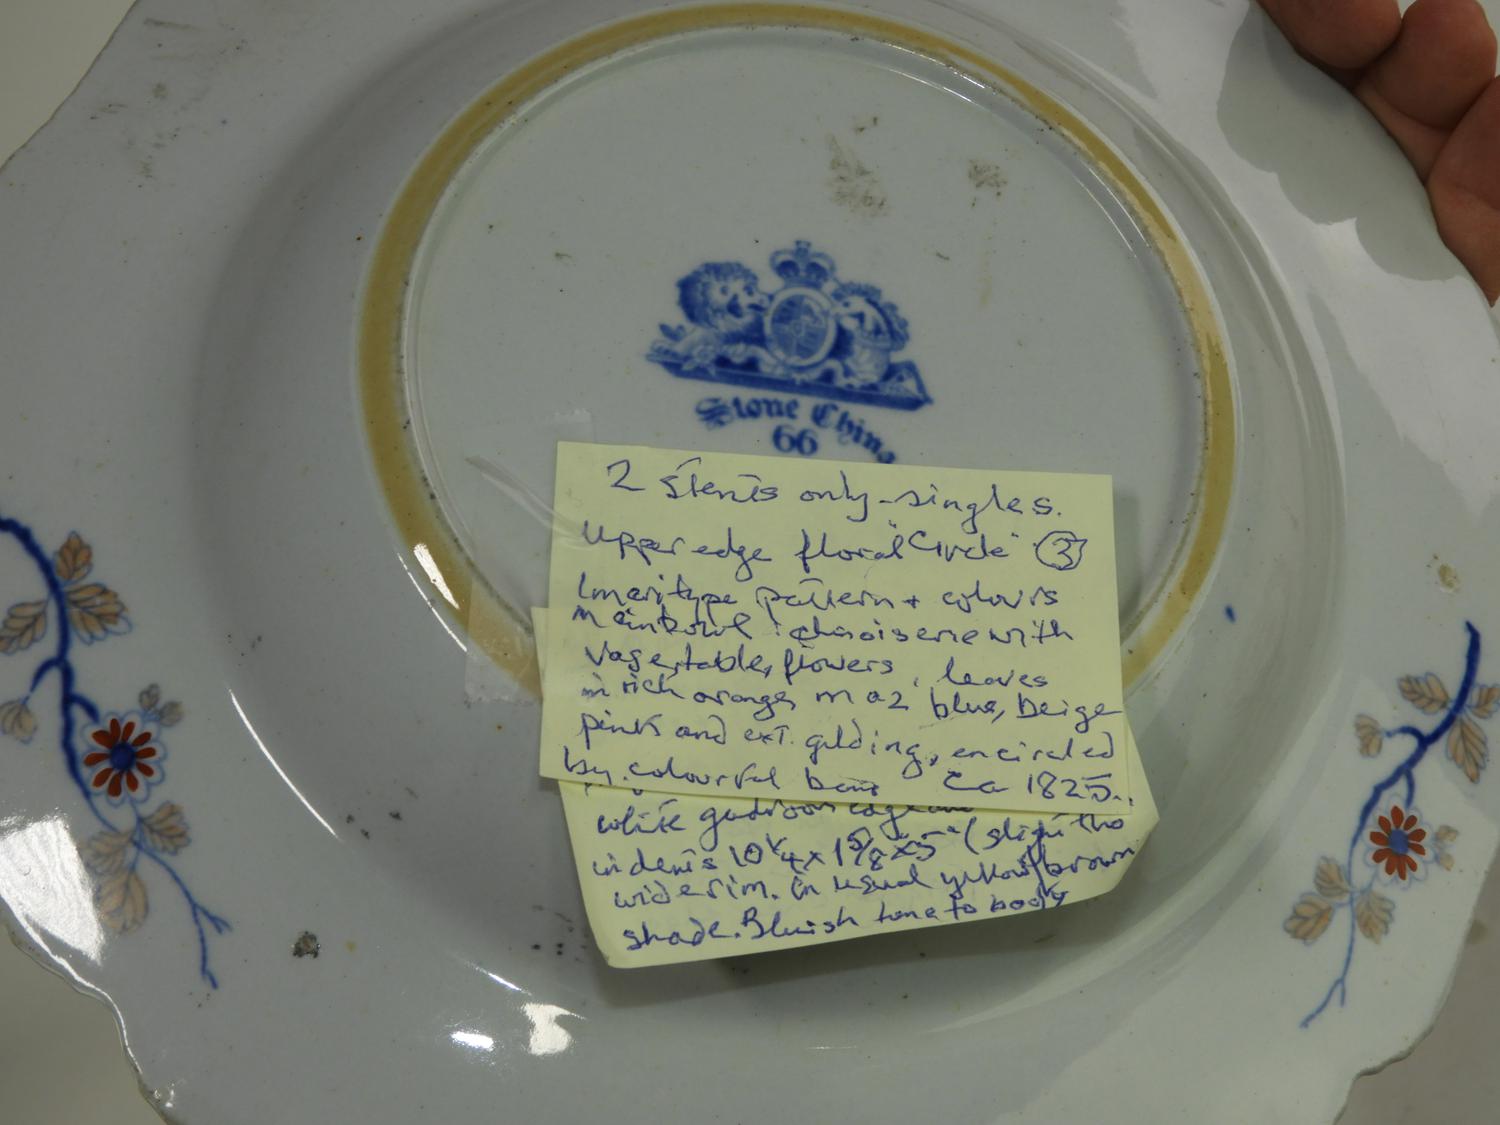 Stone China
66
2 stents only - singles.
Upper edge floral "Circle" 3
Imari type pattern + colours
main bowl : chinoiserie with
Vase, table, flowers, leaves
in rich orange, maz blue, beige
pink and ext. gilding, encircled
by colourful band Ca 1825..
white gadroon edge
indents 10 1/4 x 1 5/8 x 5" (slight tho
wide rim. In usual yellow/brown
shade. Bluish tone to body